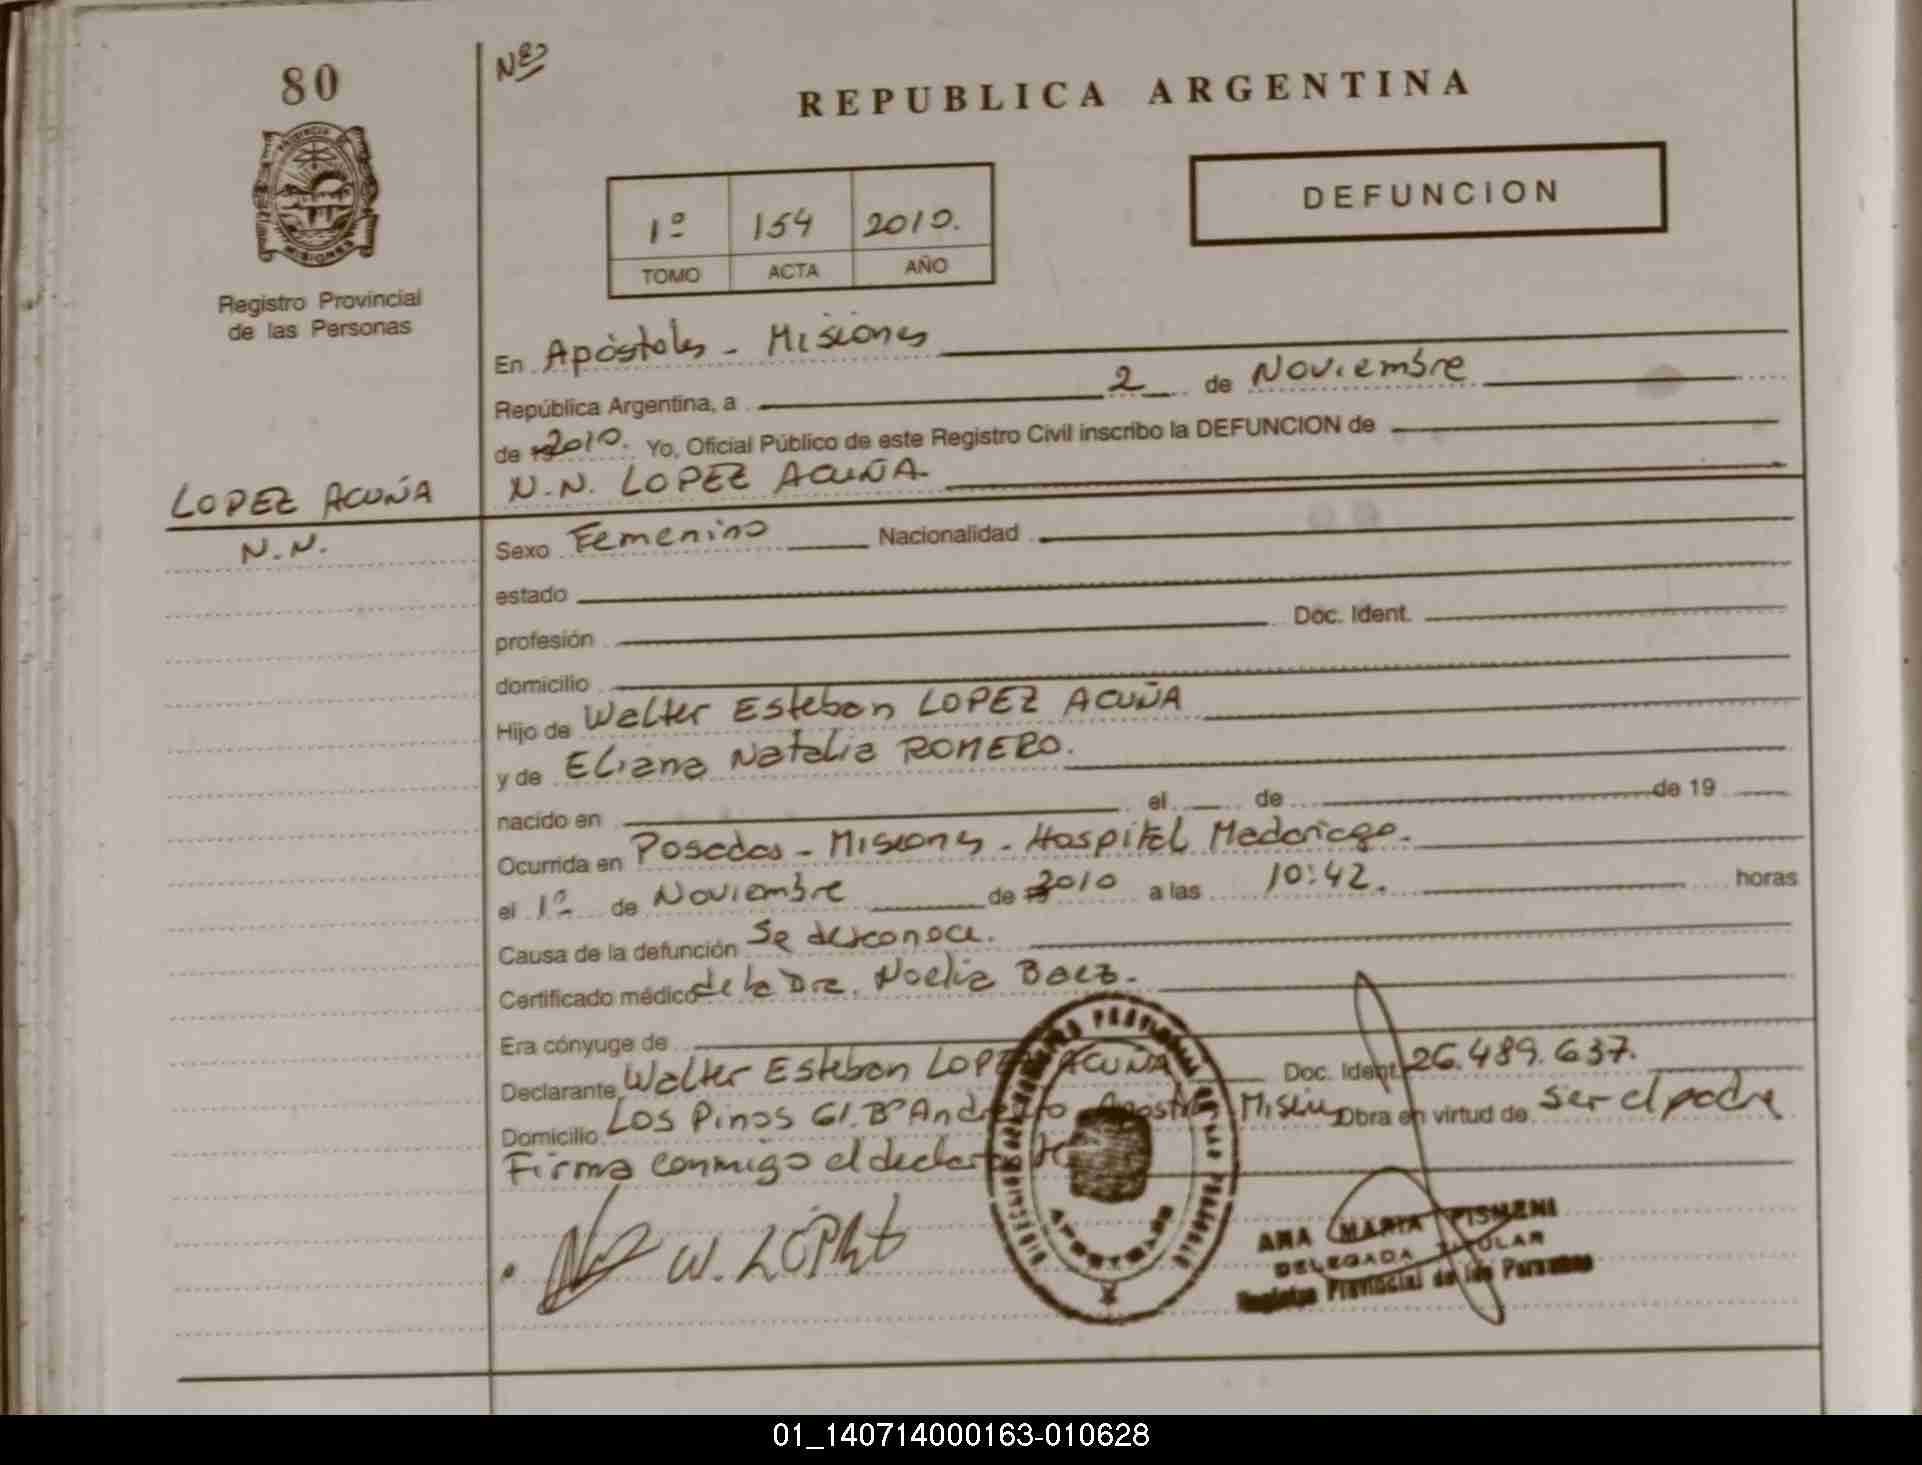 80
Nº
REPUBLICA ARGENTINA
DEFUNCION
1º 154 2010.
TOMO ACTA AÑO
MISIONES
Registro Provincial
de las Personas
En Apóstoles - Misiones
República Argentina, a 2 de Noviembre
de 2010. Yo, Oficial Público de este Registro Civil inscribo la DEFUNCION de
LOPEZ ACUÑA
N.N.
N.N. LOPEZ ACUÑA.
Sexo Femenino Nacionalidad
estado
profesión Doc. Ident.
domicilio
Hijo de Walter Esteban LOPEZ ACUÑA
y de Eliana Natalia ROMERO.
nacido en el de de 19
Ocurrida en Posadas - Misiones - Hospital Madariaga.
el 1º de Noviembre de 2010 a las 10:42. horas
Causa de la defunción Se desconoce.
Certificado médico de la Dra. Noelia Baez.
Era cónyuge de
Declarante Walter Esteban LOPEZ ACUÑA Doc. Ident. 26.489.637.
Domicilio Los Pinos 61. Bº Andresito Apóstoles Obra en virtud de ser el padre
Firma conmigo el declarante
W. LÓPEZ
APOSTOLES
ANA MARIA PISMENI
DELEGADA TITULAR
Registro Provincial de las Personas
01_140714000163-010628